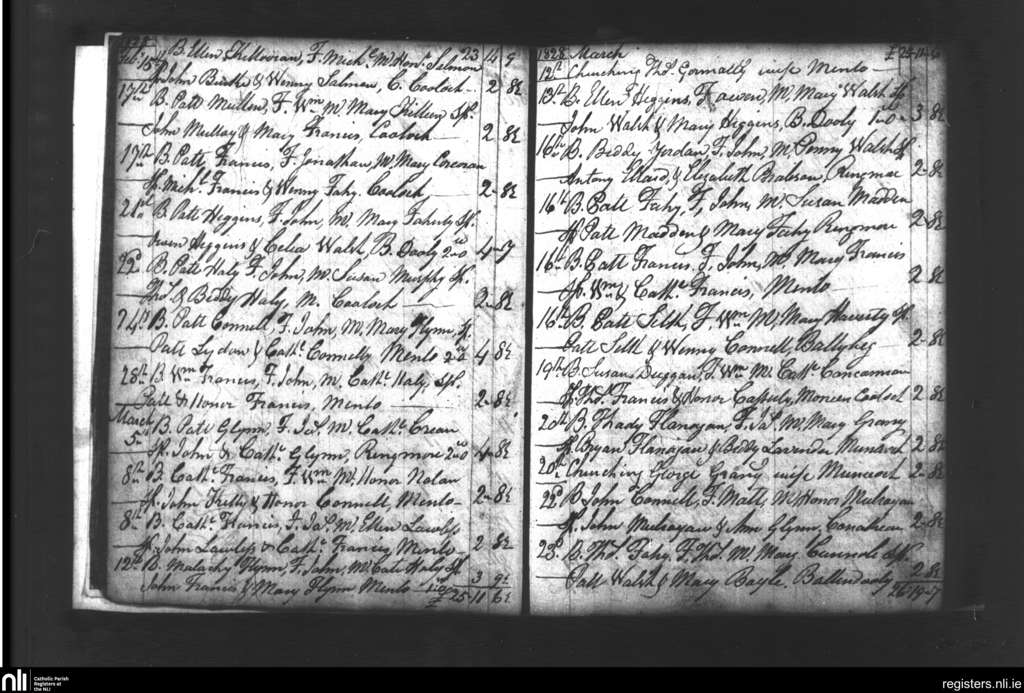 1828
Feb. 15th B. Ellen Killoonan, F. Mich. M. Hon. Salmon 23 14 9
Sp. John Burke & Winny Salmon, C. Cooloch 2 8½
17th B. Patt Mullen, F. Wm M. Mary Killeen Sp.
John Mullay & Mary Francis, Cooloch 2 8½
17th B. Patt Francis, F. Jonathan, M. Mary Corcoran
Sp. Michl. Francis & Winny Fahy. Cooloch 2 8½
21st B. Patt Higgins, F. John, M. Mary Faherty Sp.
Owen Higgins & Celia Walsh, B. Dooly 4 7
22d B. Patt Haly F. John, M. Susan Murphy Sp.
Thos. & Biddy Haly, M. Cooloch 2 8½
24th B. Patt Connell, F. John, M. Mary Flynn, Sp.
Patt Lydon & Cathe. Connelly Mento 4 8½
28th B. Wm Francis, F. John, M. Cathe. Haly, Sp.
Patt & Honor Francis, Mento 2 8½
March
5th B. Patt Glynn, F. Jas. M. Cathe. Crean
Sp. John & Cathe. Glynn, Ringmore 4 8½
8th B. Cathe. Francis, F. Wm M. Honor Nolan
Sp. John Kelly & Honor Connell, Mento 2 8½
8th B. Cathe. Francis, F. Jas. M. Ellen Lawless
Sp. John Lawless & Cathe. Francis, Mento 2 8½
12th B. Malachy Flynn, F. John, M. Cate Haly Sp.
John Francis & Mary Flynn Mento 3 9½
£ 25 11 6½
1828 March £ 25 11 6½
12th Churching Thos. Gormally wife Mento
13th B. Ellen Higgins, F. Owen, M. Mary Walsh Sp.
John Walsh & Mary Higgins, B. Dooly 3 8½
16th B. Biddy Jordan F. John, M. Penny Walsh Sp.
Antony Ward, & Elizabeth Brabson, Ringmore 2 8½
16th B. Patt Fahy, F. John, M. Susan Madden
Sp. Patt Madden & Mary Fahy Ringmore 2 8½
16th B. Patt Francis. F. John, M. Mary Francis
Sp. Wm & Cathe. Francis, Mento 2 8½
16th B. Patt Silk, F. Wm M. Mary Haverty Sp.
Patt Silk & Winny Connell Ballyheg 2 8½
19th B. Susan Duggan, F. Wm M. Cathe. Concannon
Sp. Thos. Francis & Honor Casserly, Moneen Cooloch 2 8½
20th B. Thady Flanagan, F. Jas. M. Mary Grany
Sp. Bryan Flanagan & Biddy Lavender 2 8½
20th Churching George Grany wife 2 8½
22d B. John Connell, F. Matt, M. Honor Mulrayan
Sp. John Mulrayan & Ann Glynn, 2 8½
23d B. Thos. Fahy, F. Thos. M. Mary Sp.
Patt Walsh & Mary Boyle, Ballindooly 2 8½
26 19 7
nli Catholic Parish
Registers at
the NLI
registers.nli.ie